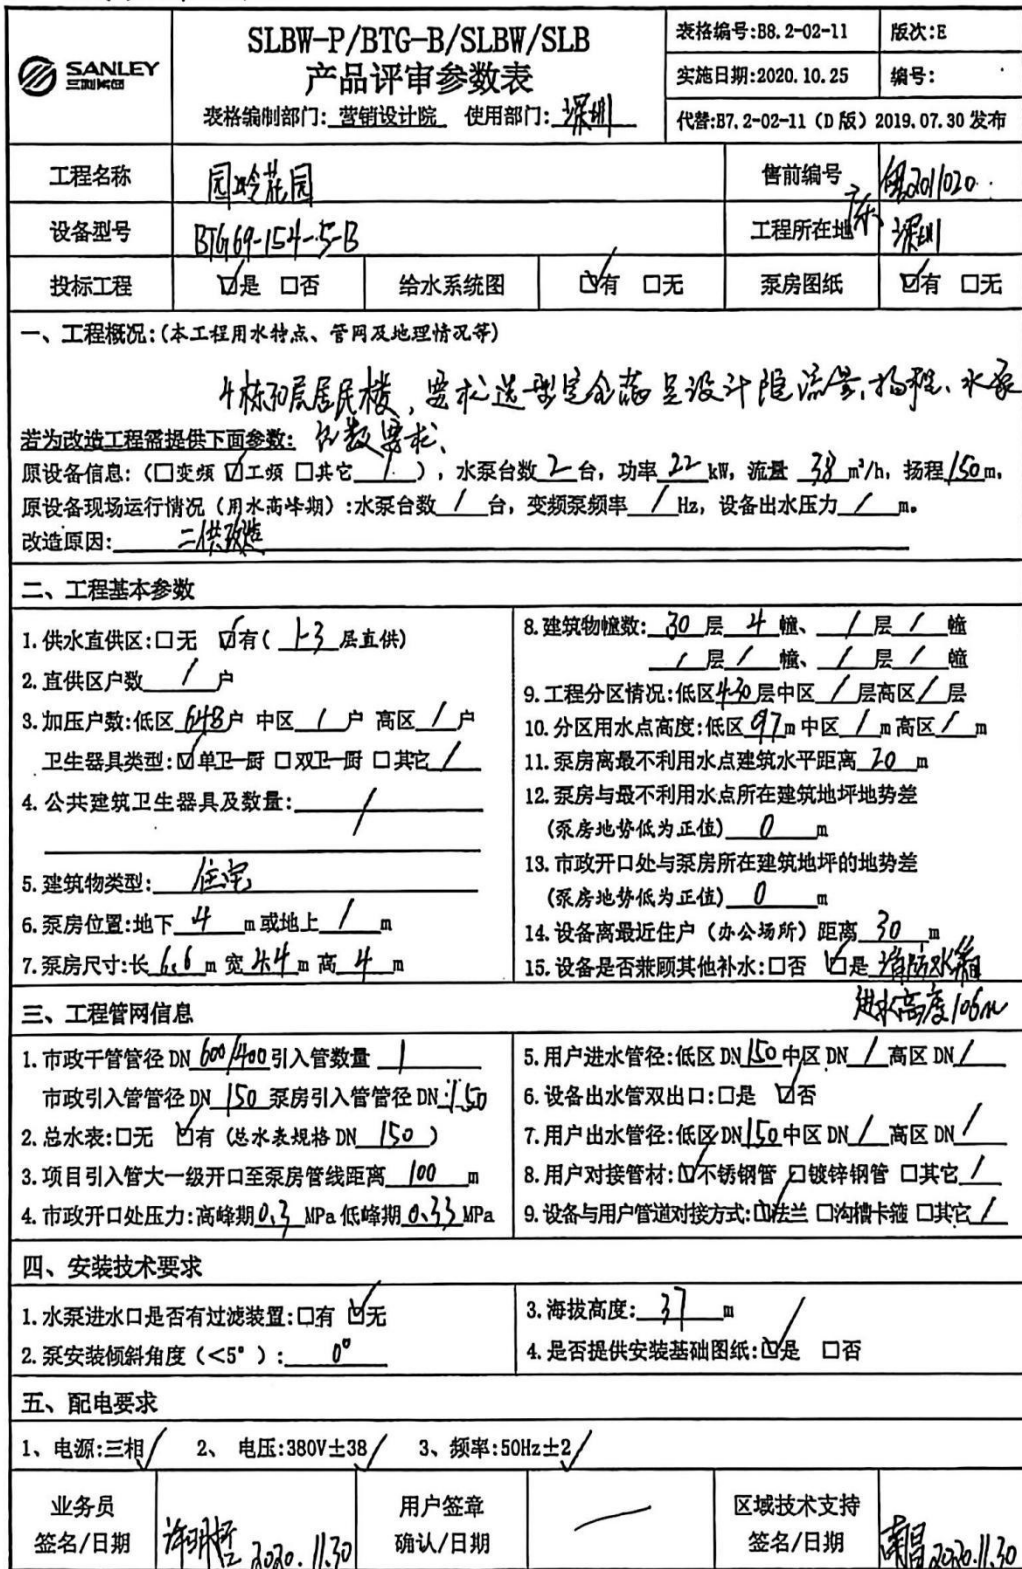 SANLEY
三利集团
SLBW-P/BTG-B/SLBW/SLB
产品评审参数表
表格编制部门:营销设计院 使用部门:深圳
表格编号:B8.2-02-11 版次:E
实施日期:2020.10.25 编号:
代替:B7.2-02-11（D版）2019.07.30 发布
工程名称 园岭花园 售前编号 2011020
设备型号 BTG69-154-5-B 工程所在地 广东深圳
投标工程 ☑是 □否 给水系统图 ☑有 □无 泵房图纸 ☑有 □无
一、工程概况:(本工程用水特点、管网及地理情况等)
4栋30层居民楼，要求选型完全满足设计院流量、扬程、水泵
台数要求、
若为改造工程需提供下面参数:
原设备信息:（□变频 ☑工频 □其它 / ），水泵台数 2 台，功率 22 kW，流量 38 m³/h，扬程 150 m，
原设备现场运行情况（用水高峰期）:水泵台数 / 台，变频泵频率 / Hz，设备出水压力 / m。
改造原因: 二供改造
二、工程基本参数
1.供水直供区:□无 ☑有( 1-3 层直供)
2.直供区户数 / 户
3.加压户数:低区 648 户 中区 / 户 高区 / 户
卫生器具类型:☑单卫一厨 □双卫一厨 □其它 /
4.公共建筑卫生器具及数量: /
5.建筑物类型: 住宅
6.泵房位置:地下 4 m或地上 / m
7.泵房尺寸:长 6.6 m 宽 4.4 m 高 4 m
8.建筑物幢数: 30 层 4 幢、 / 层 / 幢
/ 层 / 幢、 / 层 / 幢
9.工程分区情况:低区 4-30 层中区 / 层高区 / 层
10.分区用水点高度:低区 97 m 中区 / m 高区 / m
11.泵房离最不利用水点建筑水平距离 20 m
12.泵房与最不利用水点所在建筑地坪地势差
(泵房地势低为正值) 0 m
13.市政开口处与泵房所在建筑地坪的地势差
(泵房地势低为正值) 0 m
14.设备离最近住户（办公场所）距离 30 m
15.设备是否兼顾其他补水:□否 ☑是 消防水箱
进水高度106m
三、工程管网信息
1.市政干管管径 DN 600/400 引入管数量 1
市政引入管管径 DN 150 泵房引入管管径 DN 150
2.总水表:□无 ☑有 (总水表规格 DN 150 )
3.项目引入管大一级开口至泵房管线距离 100 m
4.市政开口处压力:高峰期 0.3 MPa 低峰期 0.33 MPa
5.用户进水管径:低区 DN 150 中区 DN / 高区 DN /
6.设备出水管双出口:□是 ☑否
7.用户出水管径:低区 DN 150 中区 DN / 高区 DN /
8.用户对接管材:☑不锈钢管 □镀锌钢管 □其它 /
9.设备与用户管道对接方式:☑法兰 □沟槽卡箍 □其它 /
四、安装技术要求
1.水泵进水口是否有过滤装置:□有 ☑无
2.泵安装倾斜角度（<5°）: 0°
3.海拔高度: 37 m
4.是否提供安装基础图纸:☑是 □否
五、配电要求
1、电源:三相✓ 2、 电压:380V±38✓ 3、频率:50Hz±2✓
业务员
签名/日期 2020.11.30
用户签章
确认/日期 —
区域技术支持
签名/日期 2020.11.30